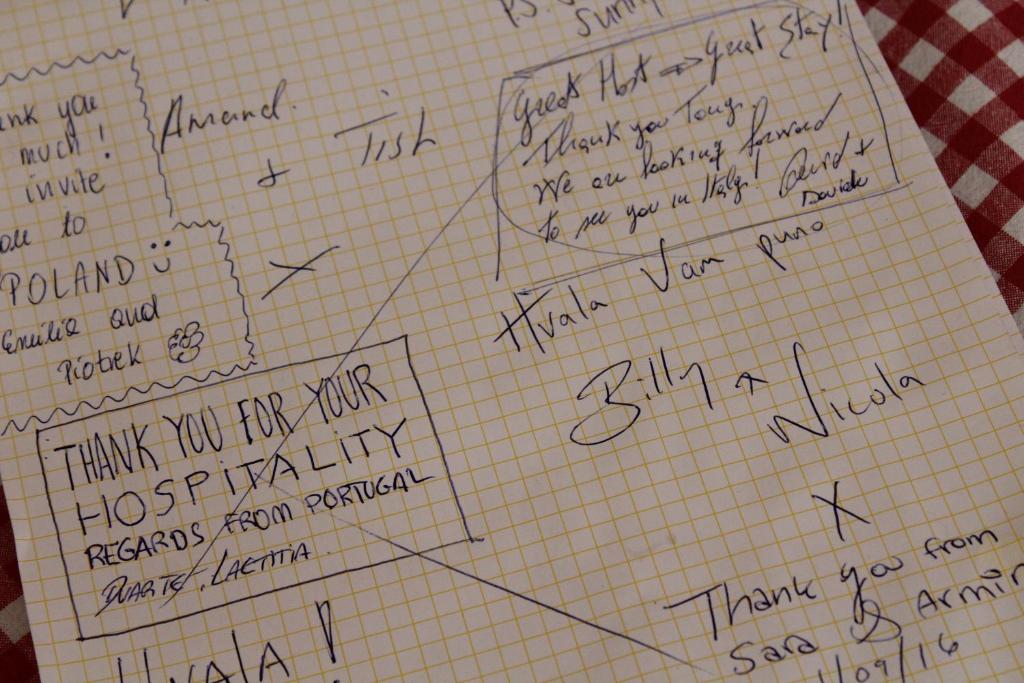 P.S.
Sunny
ank you
much!
invite
to
POLAND :)
Emilia and
Piotrek
Amand.
+
Tish
X
Great Host => Great Stay!
Thank you Tony.
We are looking forward
to see you in Italy! David +
Davide
Hvala Vam puno
Billy + Nicola
X
THANK YOU FOR YOUR
HOSPITALITY
REGARDS FROM PORTUGAL
DUARTE, LAETITIA
HVALA
Thank you from
Sara & Armin
/09/16